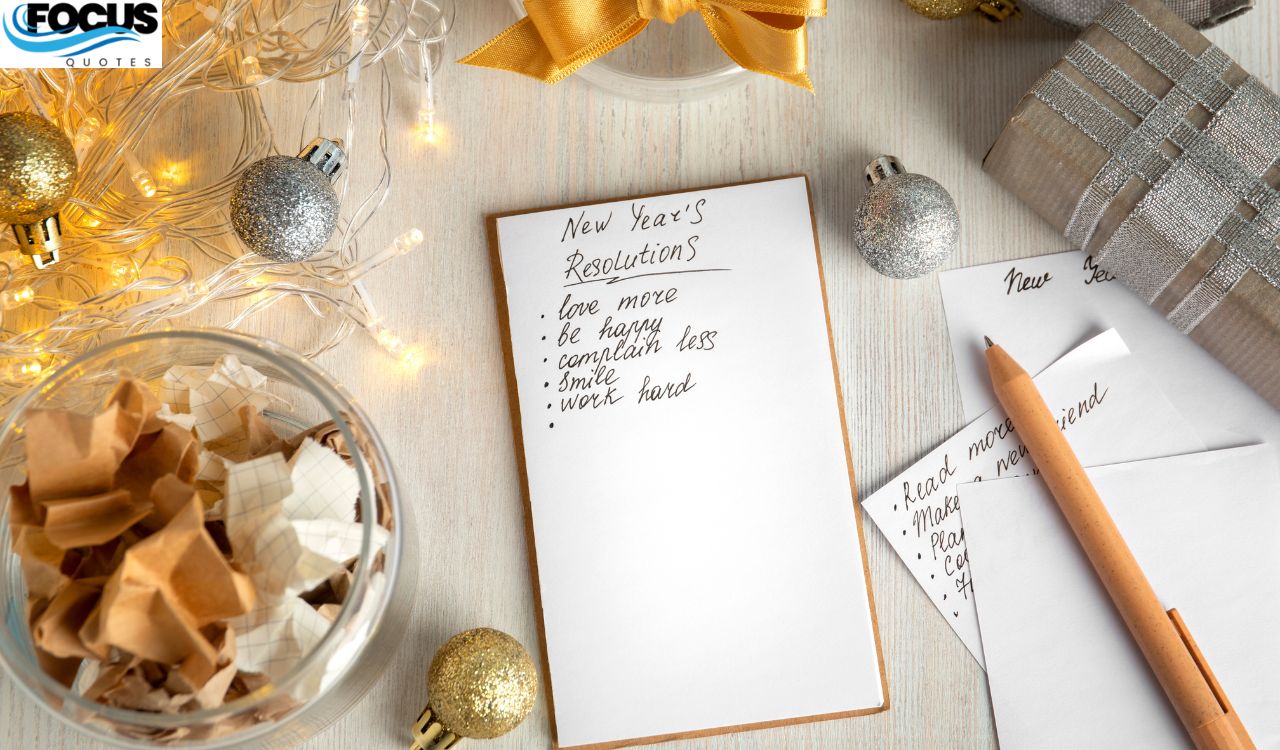 FOCUS
QUOTES
New Year's
Resolutions
· love more
· be happy
· complain less
· smile
· work hard
·
New
· Read more
· Make a new friend